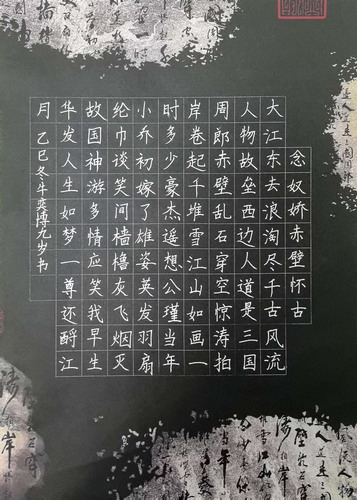 念奴娇赤壁怀古
大江东去浪淘尽千古风流
人物故垒西边人道是三国
周郎赤壁乱石穿空惊涛拍
岸卷起千堆雪江山如画一
时多少豪杰遥想公瑾当年
小乔初嫁了雄姿英发羽扇
纶巾谈笑间樯橹灰飞烟灭
故国神游多情应笑我早生
华发人生如梦一尊还酹江
月 乙巳冬牛奕博九岁书